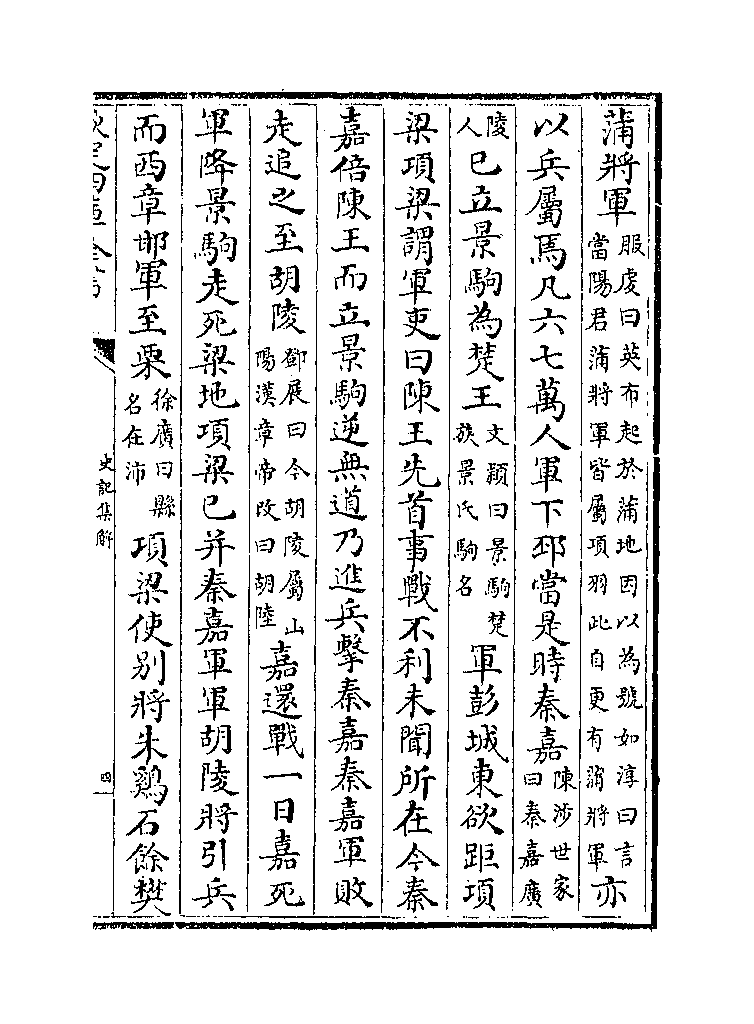 蒲將軍服虔曰英布起於蒲地因以為號如淳曰言當陽君蒲將軍皆屬項羽此自更有蒲將軍亦
以兵屬焉凡六七萬人軍下邳當是時秦嘉陳涉世家曰秦嘉廣
陵人已立景駒為楚王文潁曰景駒楚族景氏駒名軍彭城東欲距項
梁項梁謂軍吏曰陳王先首事戰不利未聞所在今秦
嘉倍陳王而立景駒逆無道乃進兵擊秦嘉秦嘉軍敗
走追之至胡陵鄧展曰今胡陵屬山陽漢章帝改曰胡陸嘉還戰一日嘉死
軍降景駒走死梁地項梁已并秦嘉軍軍胡陵將引兵
而西章邯軍至栗徐廣曰縣名在沛項梁使別將朱鷄石餘樊
欽定四庫全書
史記集解
四